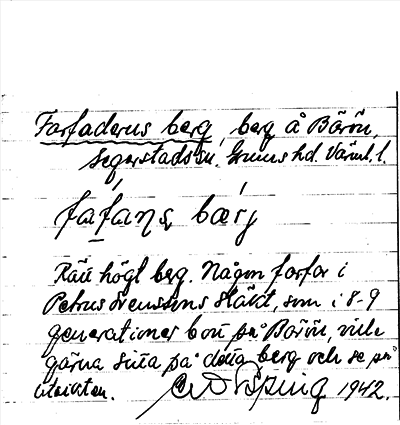 Farfaderns berg, berg å Bärön,
Segerstads sn. Grums hd. Värml. l.
fàfans bærj
Rätt högt berg. Någon farfar i
Petrus Svenssons släkt, som i 8-9
generationer bott på Bärön, ville
gärna sitta på detta berg och se på
utsikten. 1942.